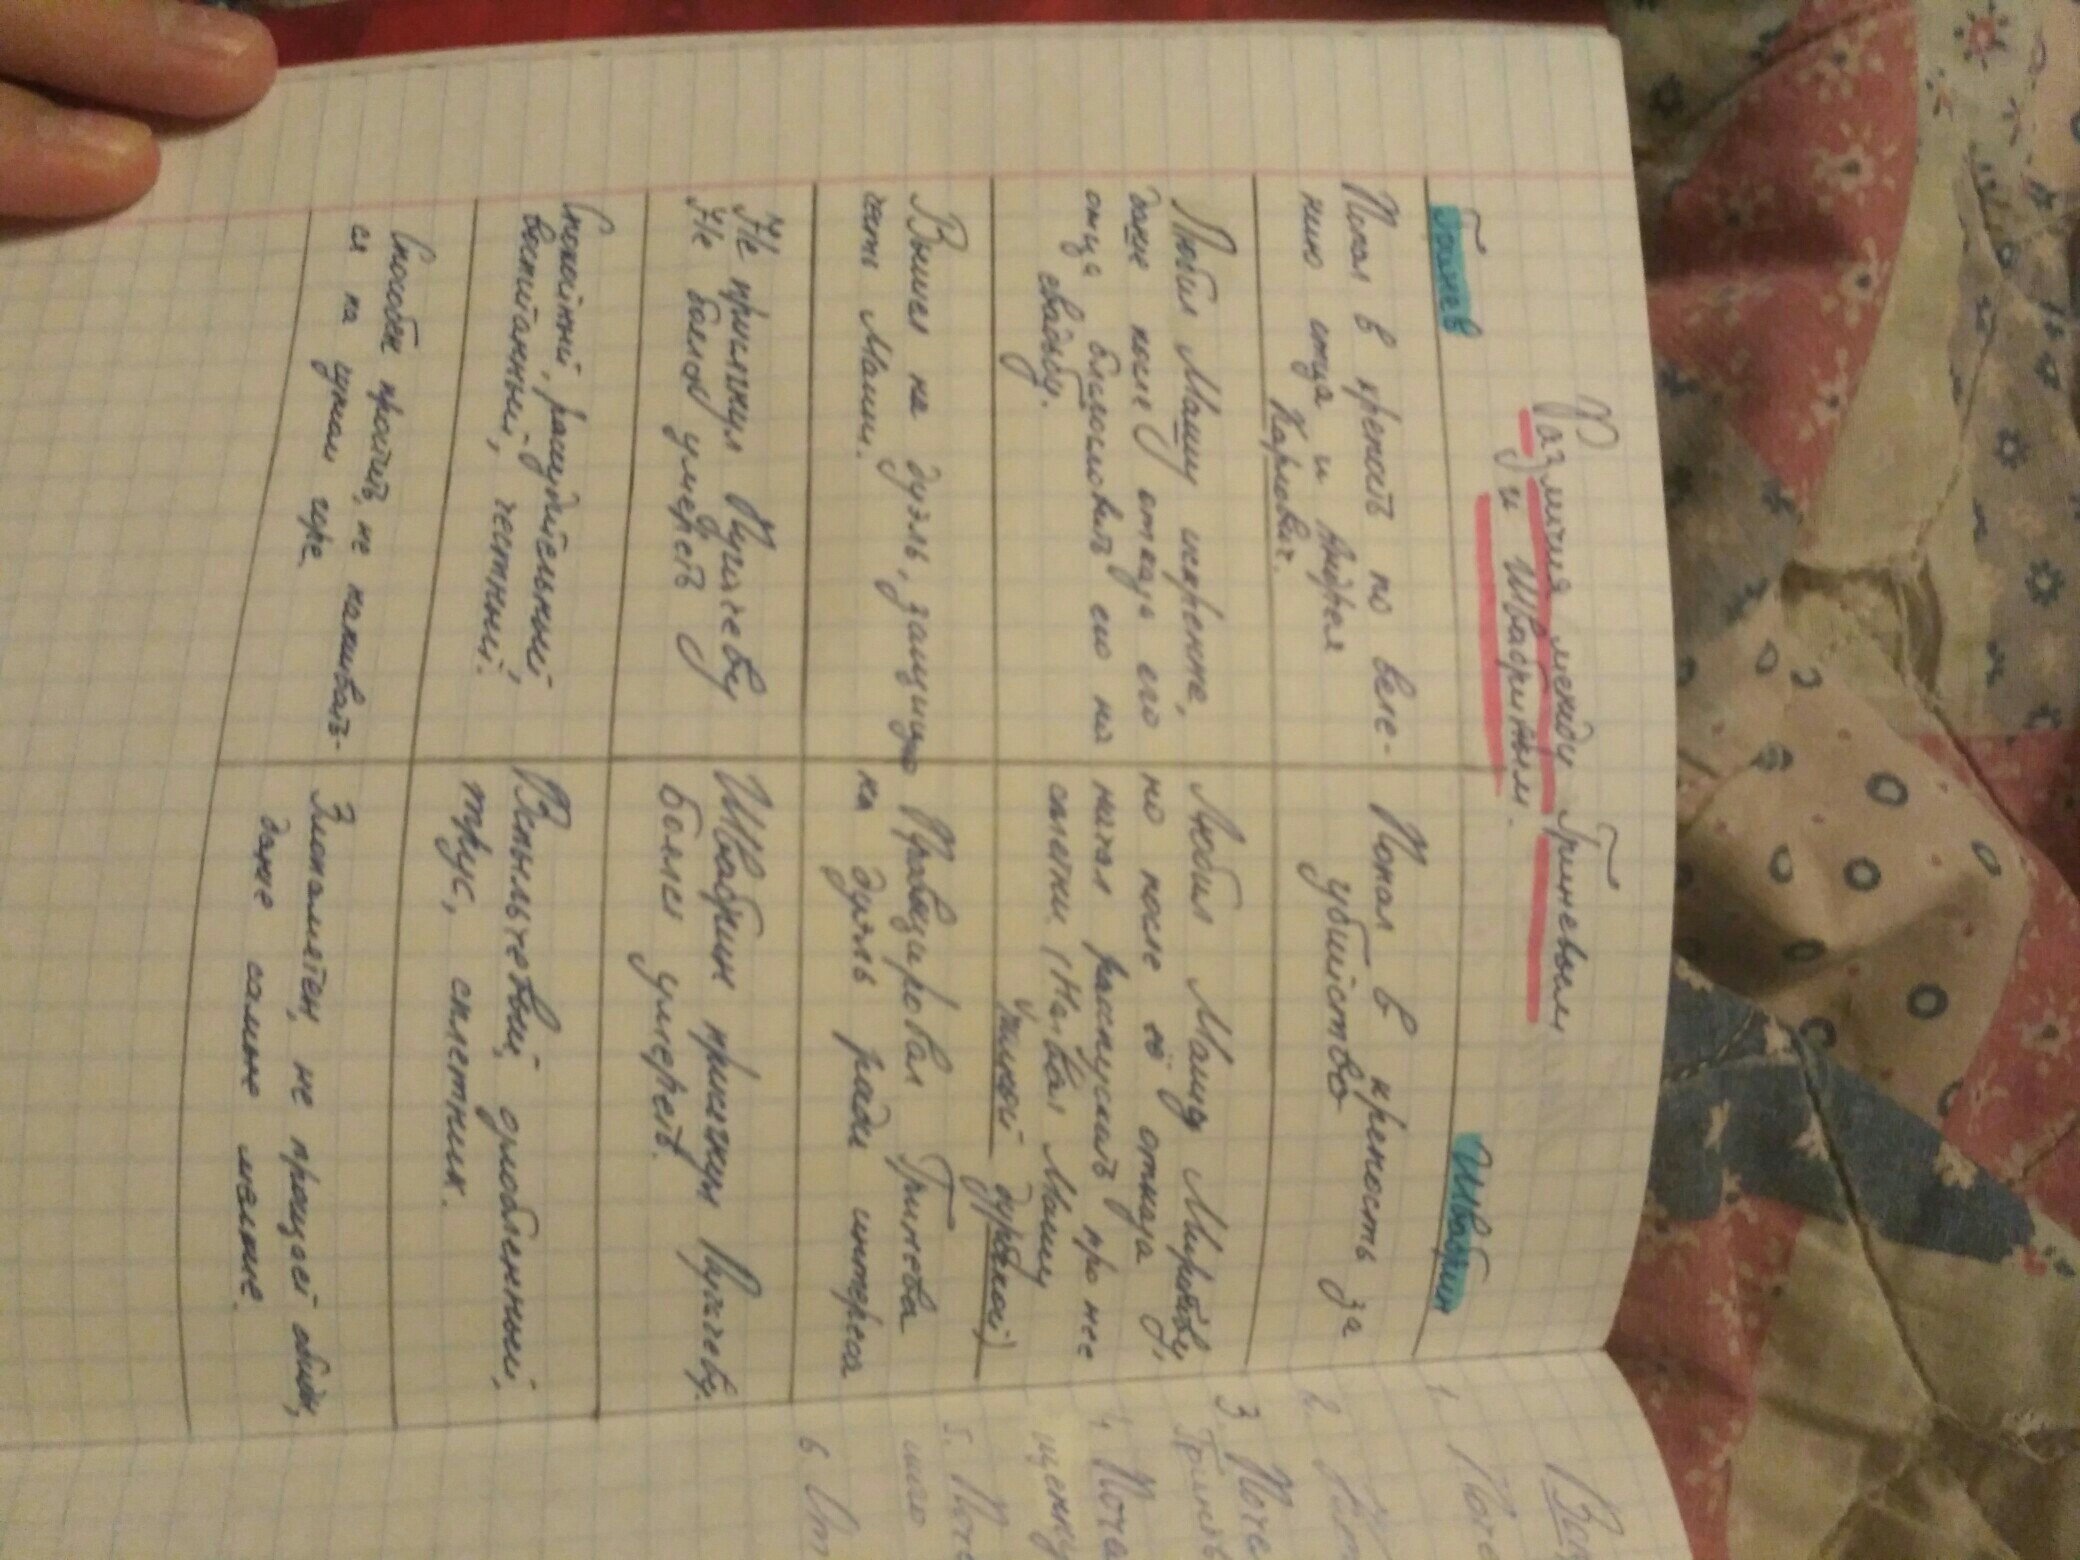 Различия между Гриневым
и Швабриным.
Гринев
Швабрин
Попал в крепость по веле-
нию отца и Андрея
Карловича.
Попал в крепость за
убийство
Любил Машу искренне,
даже после отказа его
отца благословить его на
свадьбу.
Любил Машу Миронову,
но после её отказа
начал распускать про нее
сплетни. (Назвал Машу
дуркой)
Вышел на дуэль, защищая
честь Маши.
Провоцировал Гринева
на дуэль ради интереса
Не примкнул Пугачеву
Не боялся умереть
Швабрин примкнул Пугачеву.
Боялся умереть.
Спокойный, рассудительный,
воспитанный, честный.
Вспыльчевый, озлобленный,
трус, сплетник.
Способен простить, не наживать-
ся на чужом горе.
Злопамятен, не прощает обиды,
даже самые мелкие.
1.
2.
3. Поче
4. Поча
5. Поче
6.